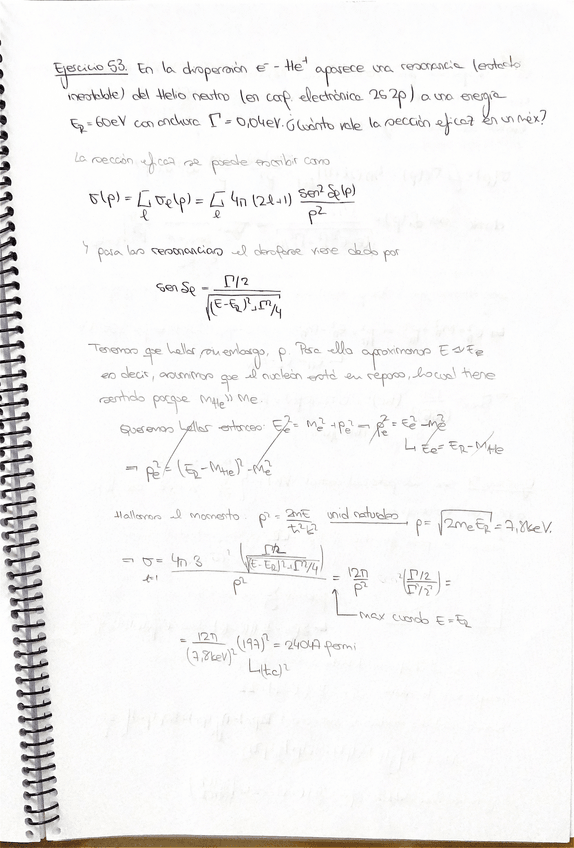 Ejercicio 53. En la dispersión e⁻ - He⁺ aparece una resonancia (estado
inestable) del Helio neutro (en conf. electrónica 2s 2p) a una energía
E_R = 60 eV con anchura Γ = 0,04 eV. ¿Cuánto vale la sección eficaz en un máx?
La sección eficaz se puede escribir como
σ(p) = Σ_l σ_l(p) = Σ_l 4π (2l+1) sen² δ_l(p) / p²
Y para las resonancias el desfase viene dado por
sen δ_l = Γ/2 / √((E-E_R)² + Γ²/4)
Tenemos que hallar, sin embargo, p. Para ello aproximamos E ≈ E_e
es decir, asumimos que el nucleón está en reposo, lo cual tiene
sentido porque M_He >> m_e
Queremos hallar entonces: E_e² = m_e² + p_e² → p_e² = E_e² - m_e²
↳ E_e = E_R - M_He
→ p_e² = (E_R - M_He)² - m_e²
Hallamos el momento. p² = 2mE / ħ²c² unid naturales p = √(2m_e E_R) = 7,8 keV.
⇒ σ = 4π 3 (Γ/2 / √((E-E_R)² + Γ²/4))² / p² = 12π / p² (Γ/2 / Γ/2)² =
l=1
max cuando E = E_R
= 12π / (7,8 keV)² (197)² = 24047 fermi
↳ (ħc)²